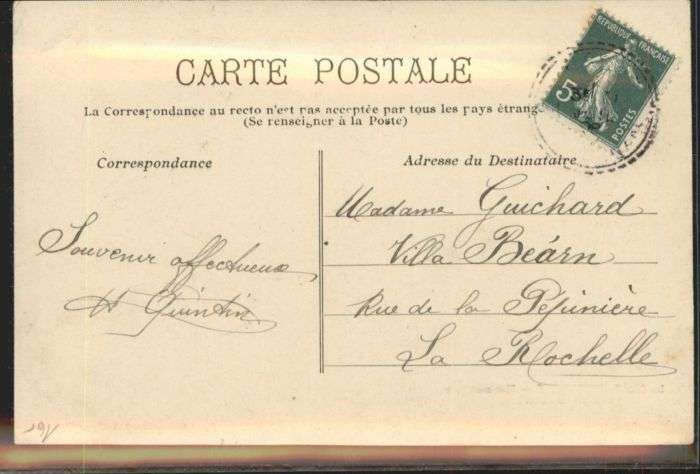 CARTE POSTALE
La Correspondance au recto n'est pas acceptée par tous les pays étrang
(Se renseigner à la Poste)
Correspondance
Adresse du Destinataire
Souvenir affectueux
H Quintin
Madame Guichard
Villa Béarn
Rue de la Pépinière
La Rochelle
REPUBLIQUE FRANÇAISE
5c
POSTES